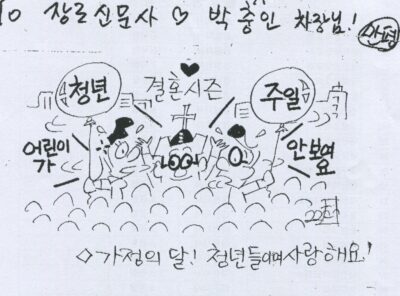 to 장로신문사 ♡ 박충인 차장님!
청년
결혼시즌
주일
어린이
가
안보여
요
◇가정의 달! 청년들이여 사랑해요!